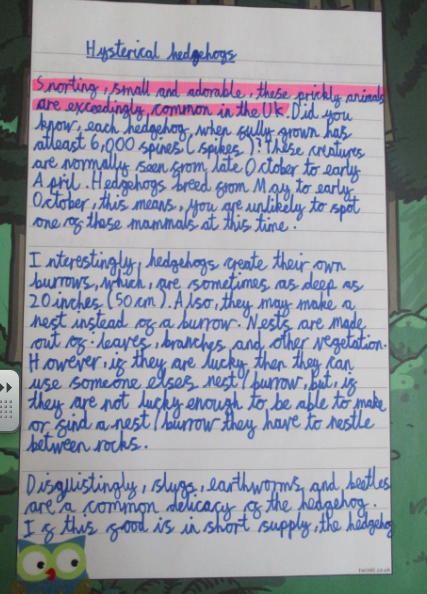 Hysterical hedgehogs
Snorting, small and adorable, these prickly animals
are exceedingly common in the UK. Did you
know, each hedgehog, when fully grown has
atleast 6,000 spines (spikes)? These creatures
are normally seen from late October to early
April. Hedgehogs breed from May to early
October, this means, you are unlikely to spot
one of these mammals at this time.
Interestingly, hedgehogs create their own
burrows, which, are sometimes as deep as
20 inches (50cm). Also, they may make a
nest instead of a burrow. Nests are made
out of: leaves, branches and other vegetation.
However, if they are lucky then they can
use someone elses nest/burrow, but, if
they are not lucky enough to be able to make
or find a nest/burrow they have to nestle
between rocks.
Disguistingly, slugs, earthworms, and beetles
are a common delicacy of the hedgehog.
If this food is in short supply, the hedgehog
twinkl.co.uk